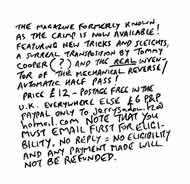 THE MAGAZINE FORMERLY KNOWN
AS THE CRIMP IS NOW AVAILABLE!
FEATURING NEW TRICKS AND SLEIGHTS,
A SURREAL TRANSPOSITION BY TOMMY
COOPER (?) AND THE REAL INVEN-
TOR OF THE MECHANICAL REVERSE/
AUTOMATIC HALF PASS!
PRICE £12 - POSTAGE FREE IN THE
U.K. EVERYWHERE ELSE £6 P&P
PAYPAL ONLY TO
NOTE THAT YOU
MUST EMAIL FIRST FOR ELIGI-
BILITY. NO REPLY = NO ELIGIBILITY
AND ANY PAYMENT MADE WILL
NOT BE REFUNDED.